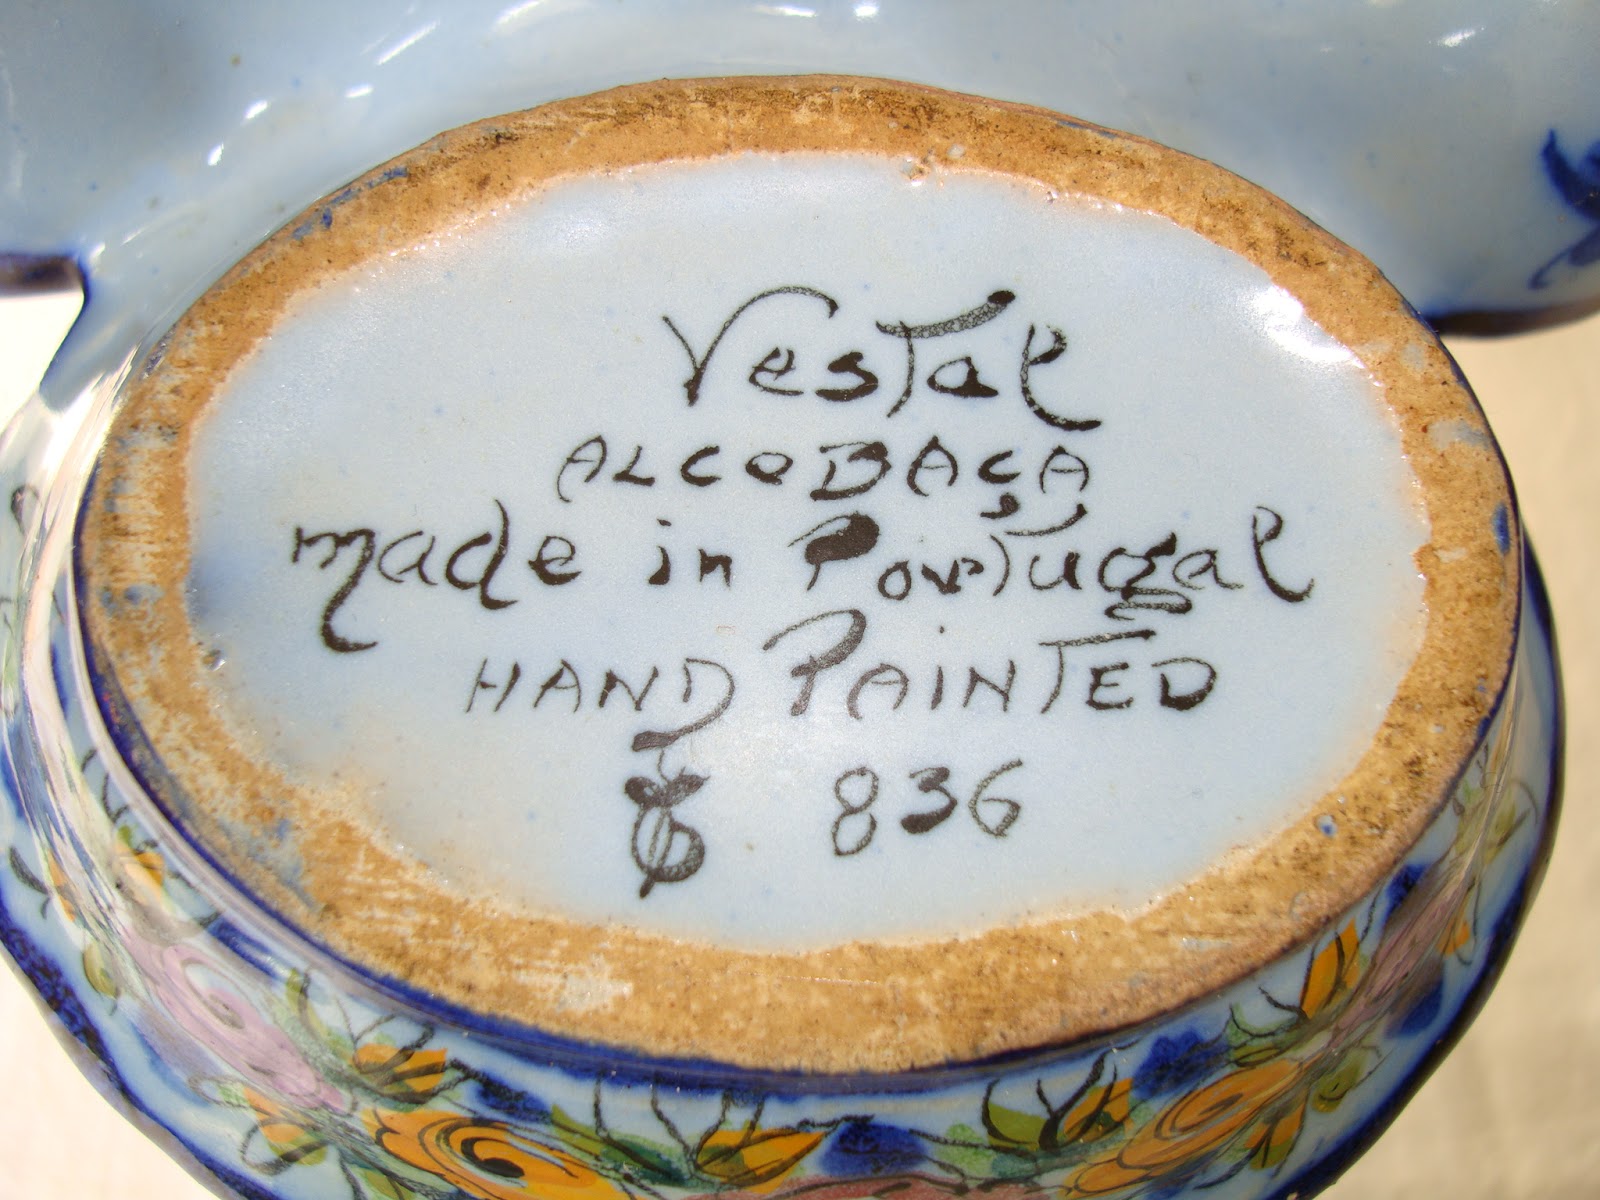 Vestal
ALCOBAÇA
made in Portugal
HAND PAINTED
836